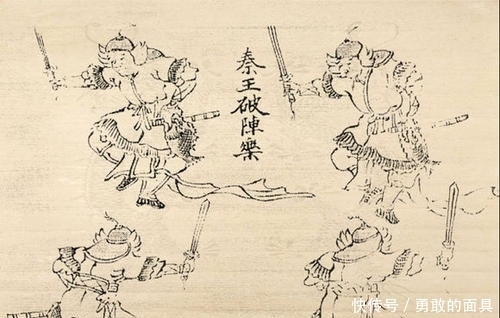 秦王破陣樂
快传号／勇敢的面具